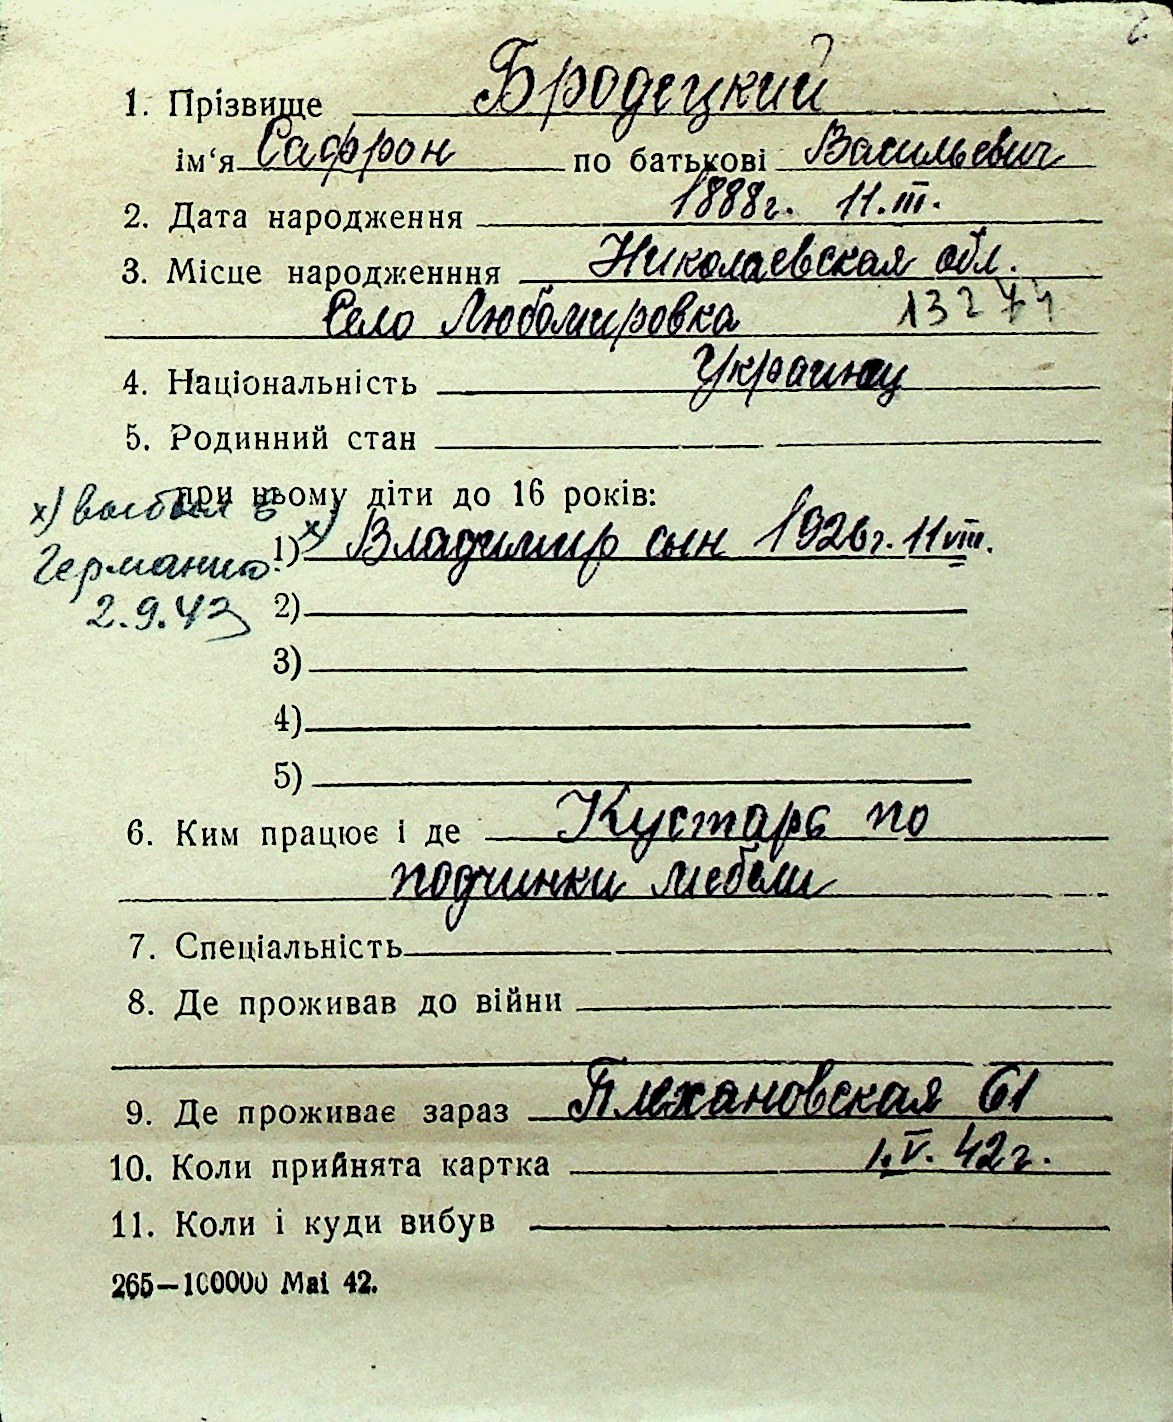 2.
1. Прізвище Бродецкий
ім‘я Сафрон по батькові Васильевич
2. Дата народження 1888г. 11.III.
3. Місце народженння Николаевская обл.
Село Любомировка 13274
4. Національність Украинец
5. Родинний стан
при ньому діти до 16 років:
х) выбыл в
Германию
2.9.43
1) х) Владимир сын 1926г. 11 VIII.
2)
3)
4)
5)
6. Ким працює і де Кустарь по
подчинки мебели
7. Спеціальність
8. Де проживав до війни
9. Де проживає зараз Плехановская 61
10. Коли прийнята картка 1.V. 42г.
11. Коли і куди вибув
265—100000 Mai 42.